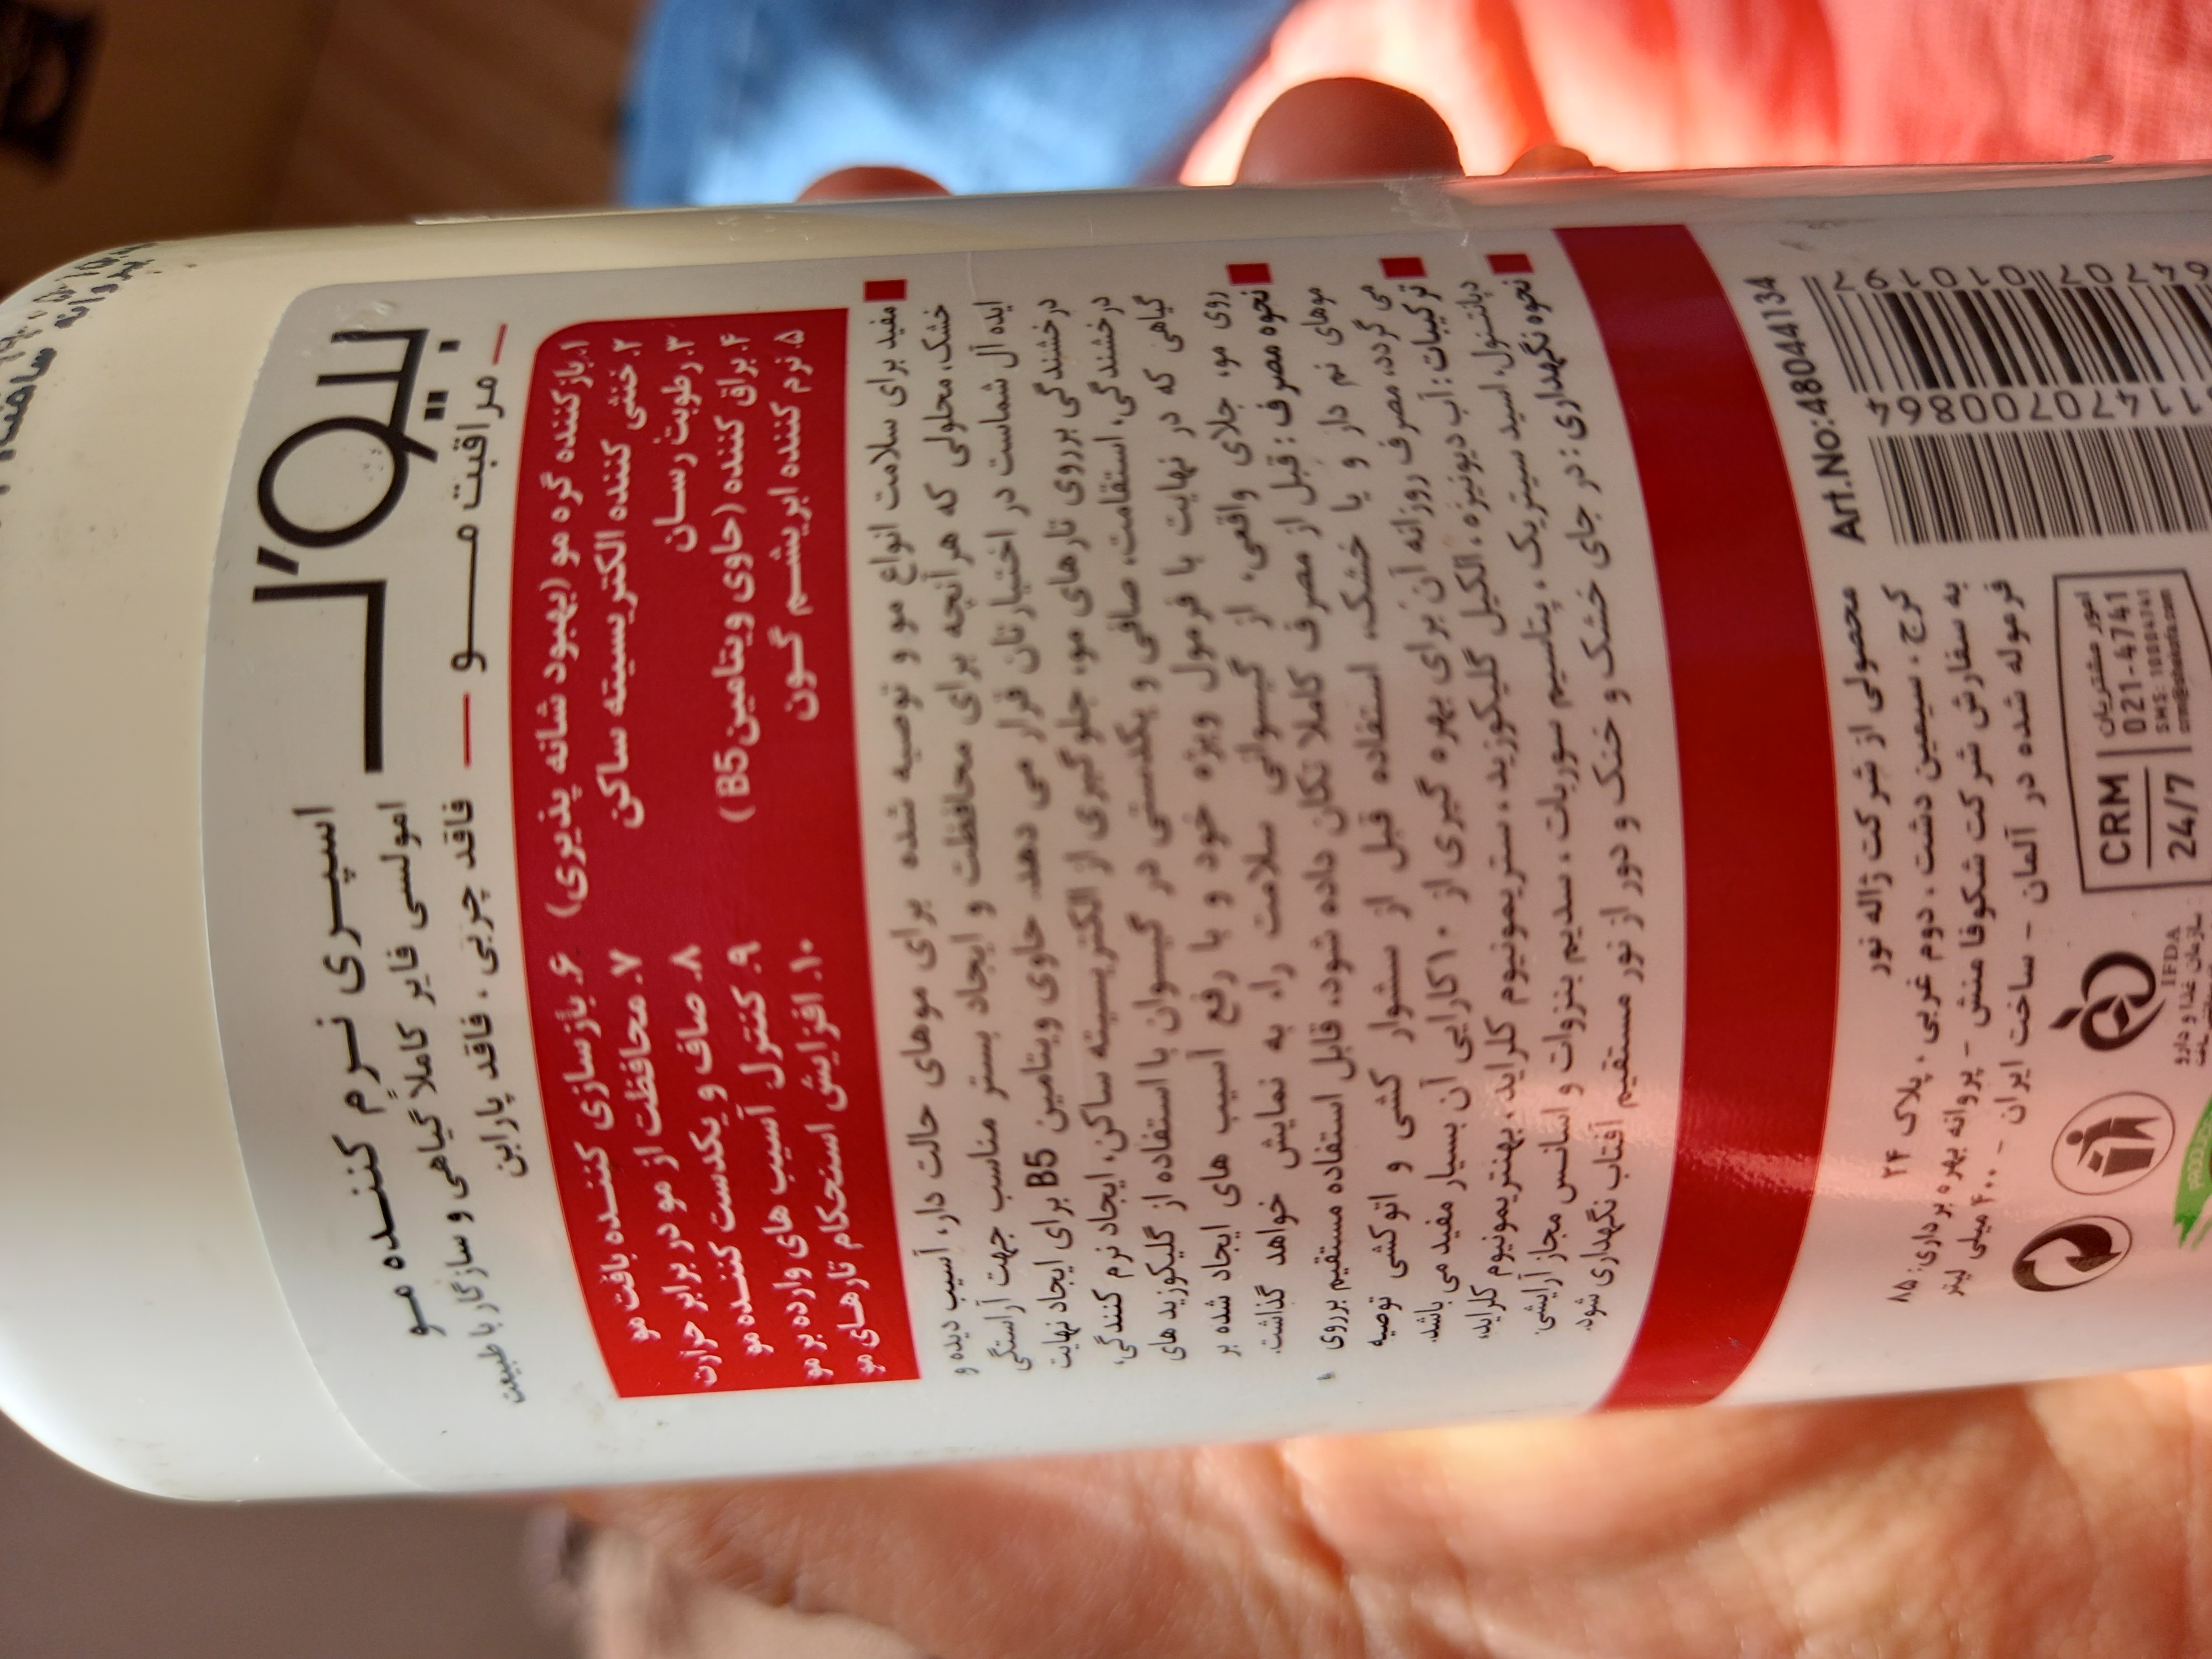 بیو'ل
مراقبت مو
اسپری نرم کننده مو
امولسی فایر کاملاً گیاهی و سازگار با طبیعت
فاقد چربی، فاقد پارابن
۱. بازکننده گره مو (بهبود شانه پذیری)
۲. خنثی کننده الکتریسیته ساکن
۳. رطوبت رسان
۴. براق کننده (حاوی ویتامین B5)
۵. نرم کننده ابریشم گون
۶. بازسازی کننده بافت مو
۷. محافظت از مو در برابر حرارت
۸. صاف و یکدست کننده مو
۹. کنترل آسیب های وارده بر مو
۱۰. افزایش استحکام تارهای مو
مفید برای سلامت انواع مو و توصیه شده برای موهای حالت دار، آسیب دیده و
خشک، محلولی که هرآنچه برای محافظت و ایجاد بستر مناسب جهت آراستگی
ایده آل شماست در اختیارتان قرار می دهد. حاوی ویتامین B5 برای ایجاد نهایت
درخشندگی برروی تارهای مو، جلوگیری از الکتریسیته ساکن، ایجاد نرم کنندگی،
درخشندگی، استقامت، صافی و یکدستی در گیسوان با استفاده از گلیکوزیدهای
گیاهی که در نهایت با فرمول ویژه خود و با رفع آسیب های ایجاد شده بر
روی مو، جلای واقعی، از گیسوانی سلامت را، به نمایش خواهد گذاشت.
نحوه مصرف: قبل از مصرف کاملا تکان داده شود، قابل استفاده مستقیم برروی
موهای نم دار و یا خشک، استفاده قبل از سشوار کشی و اتوکشی توصیه
می گردد، مصرف روزانه آن برای بهره گیری از ۱۰ کارایی آن بسیار مفید می باشد.
ترکیبات: آب دیونیزه، الکیل گلیکوزید، ستریمونیوم کلراید، بهنتریمونیوم کلراید،
دپانتنول، اسید سیتریک، پتاسیم سوربات، سدیم بنزوات و اسانس مجاز آرایشی.
نحوه نگهداری: در جای خشک و خنک و دور از نور مستقیم آفتاب نگهداری شود.
Art.No:48044134
محصولی از شرکت ژاله نور
کرج، سیمین دشت، دوم غربی، پلاک ۲۴
به سفارش شرکت شکوفا منش - پروانه بهره برداری: ۸۵
فرموله شده در آلمان - ساخت ایران - ۴۰۰ میلی لیتر
CRM
24/7
امور مشتریان
021-4741
SMS: 10004741
IFDA
سازمان غذا و دارو